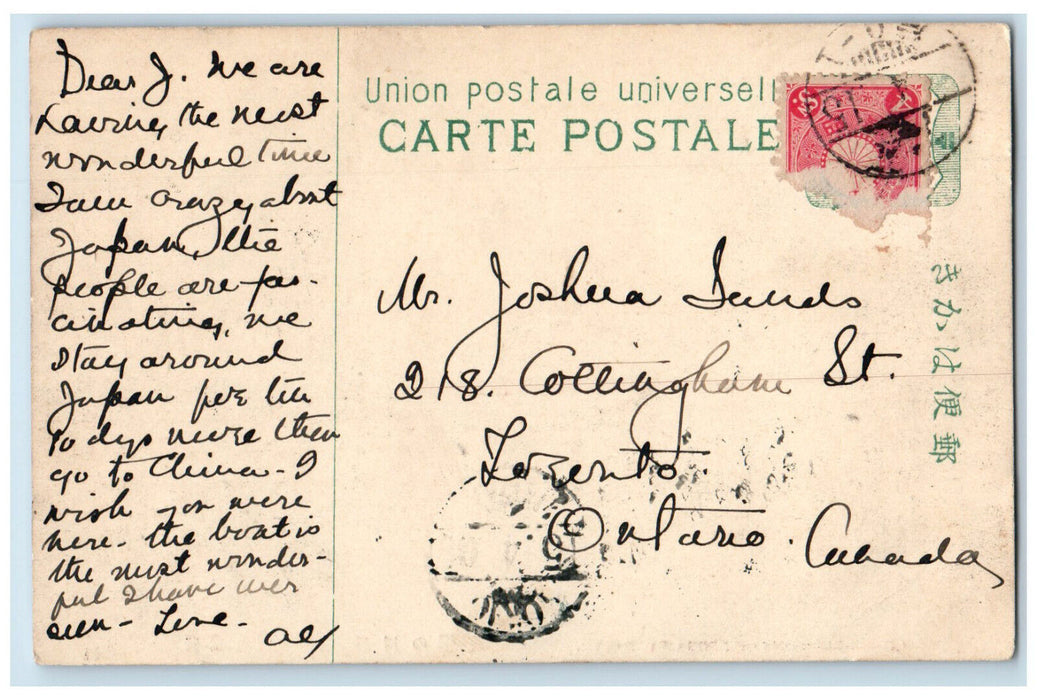 Dear J. We are
having the most
wonderful time
I am crazy about
Japan, the
people are fas-
cinating, we
stay around
Japan for ten
10 days more then
go to China - I
wish you were
here - the boat is
the most wonder-
ful I have ever
seen - Love -
Union postale universell
CARTE POSTALE
Mr. Joshua Sands
218. Cottingham St.
Toronto.
Ontario. Canada
きかは便郵